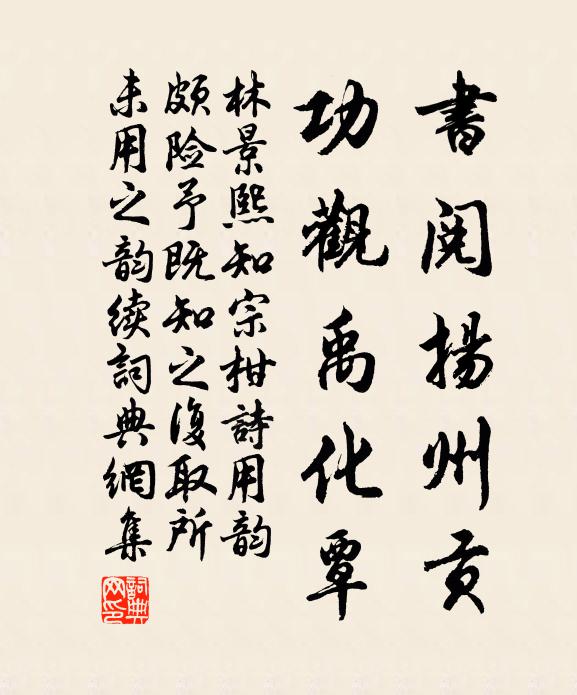 書閱揚州貢
功觀禹化覃
林景熙知宗柑詩用韵
頗险予既知之復取所
未用之韵續詞典網集
詞典網印